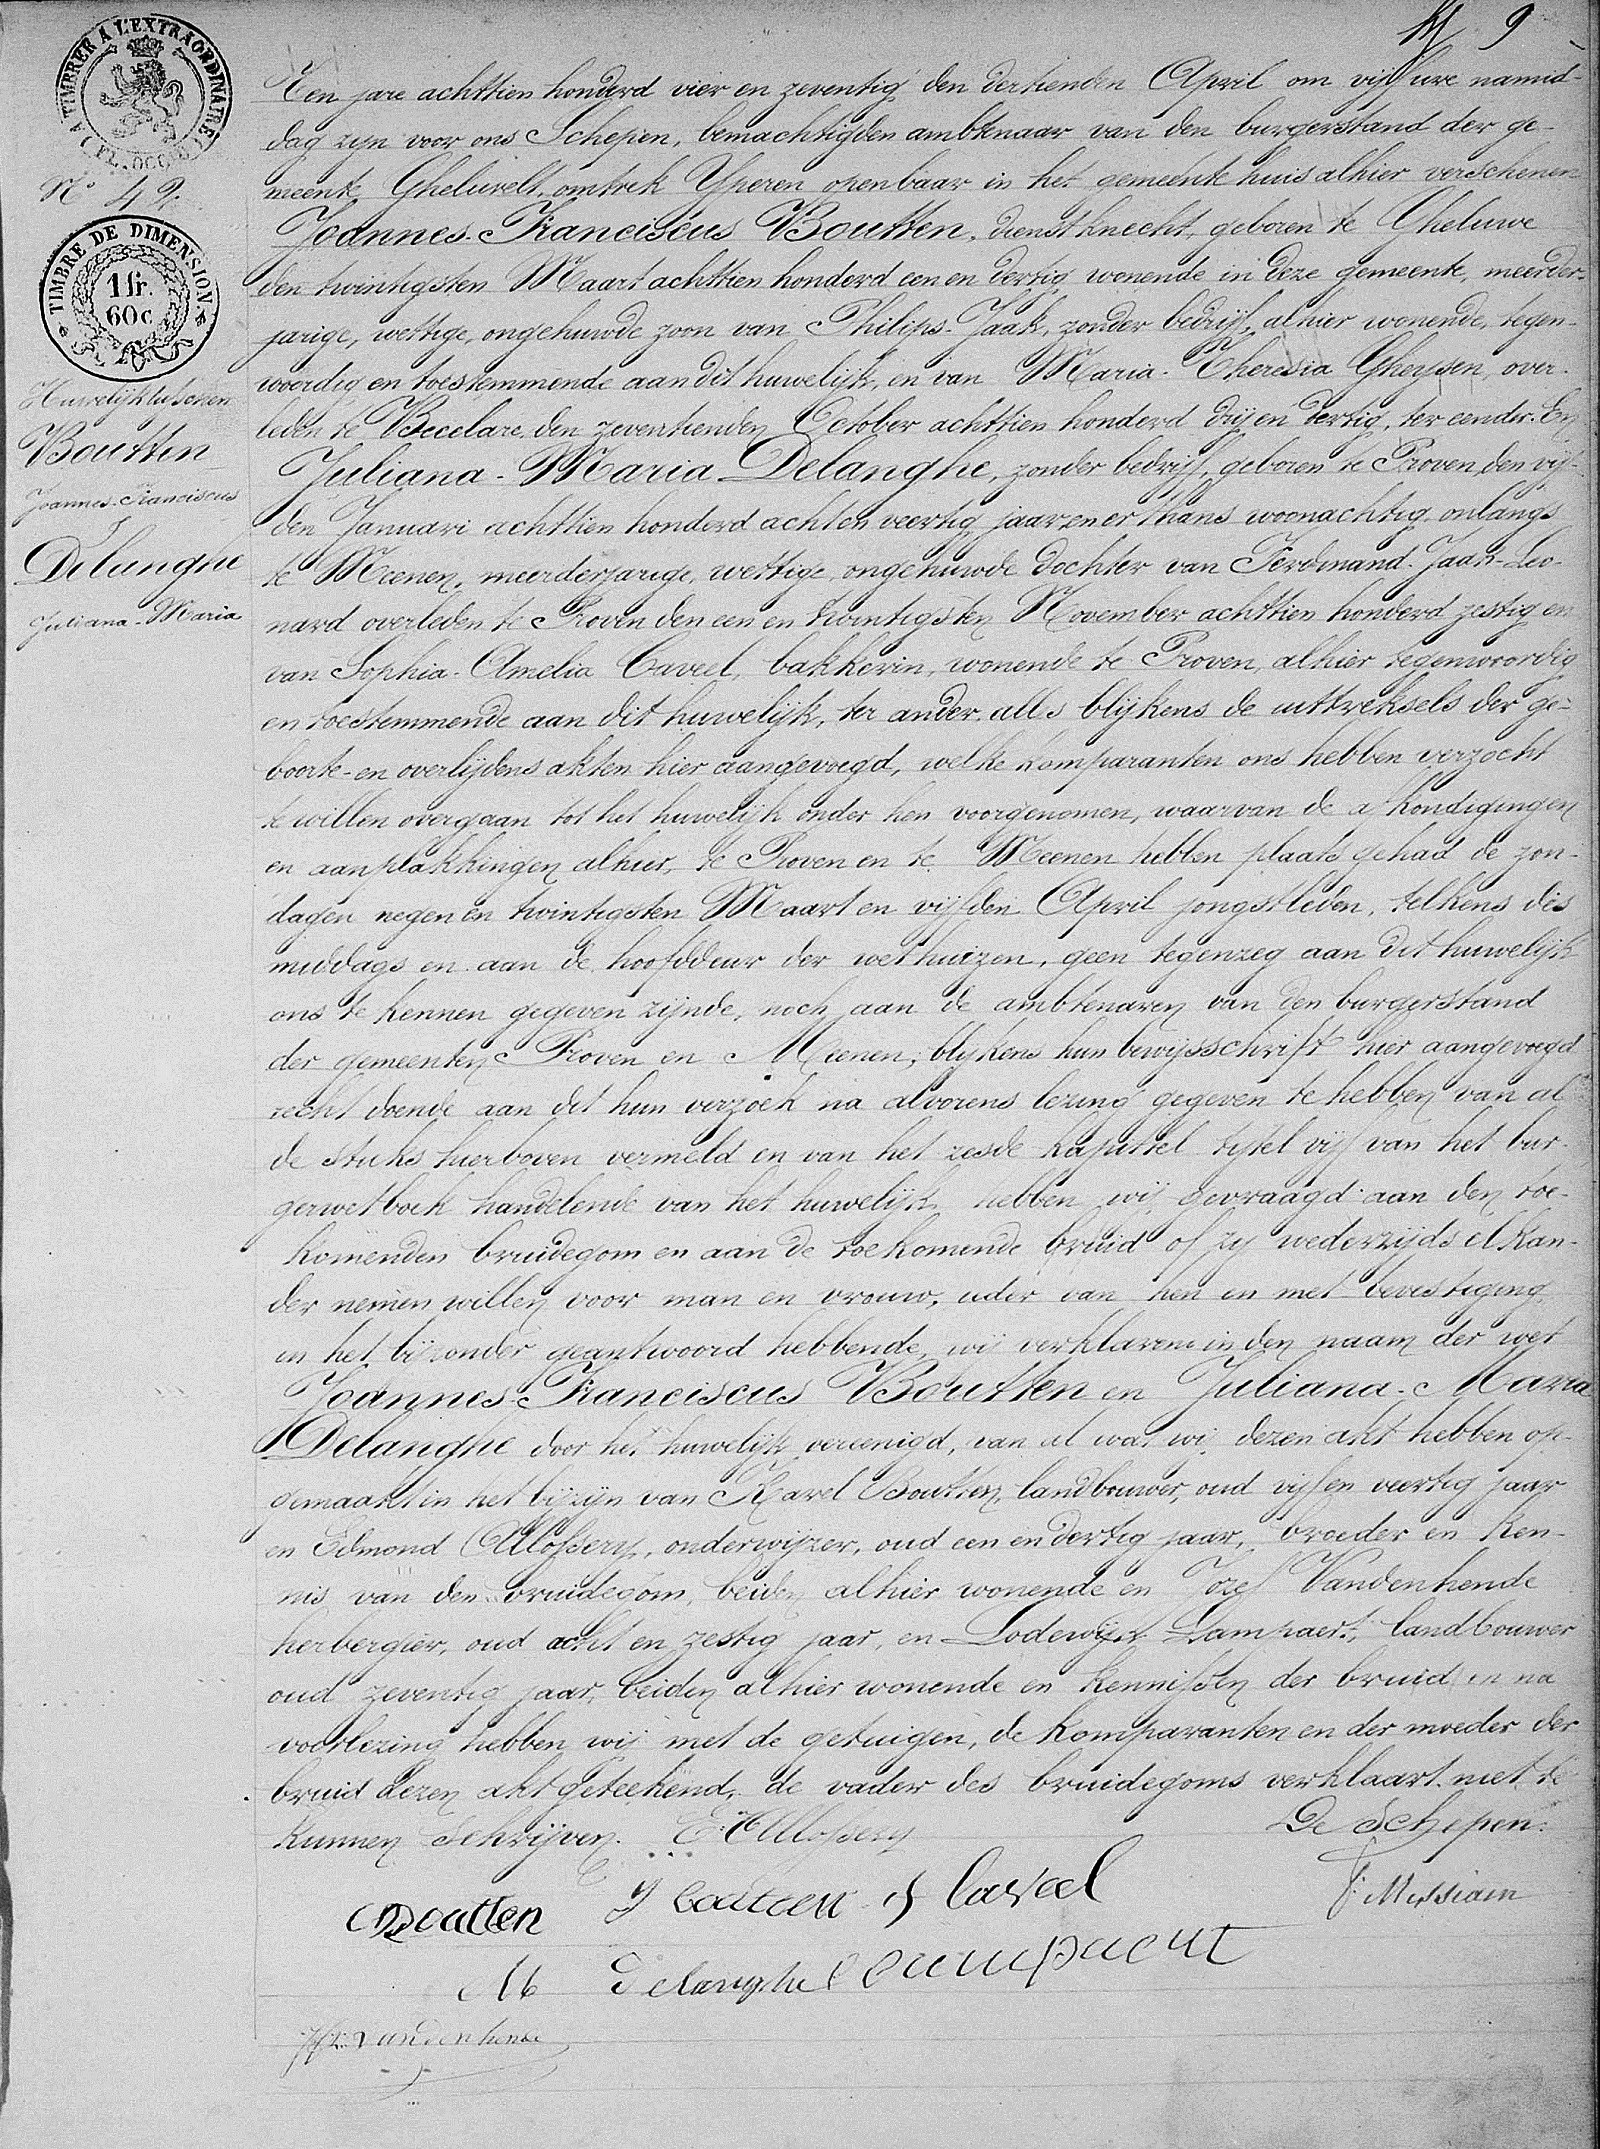 9
A TIMBRER A L'EXTRAORDINAIRE
(FL. OCC.)
N° 42
TIMBRE DE DIMENSION.
1 fr.
60 c
Huwelijk tusschen
Boutten
Joannes-Franciscus
&
Delanghe
Juliana-Maria
Ten jare achttien honderd vier en zeventig den dertienden April om vijf ure namid-
dag zyn voor ons Schepen, bemachtigden ambtenaar van den burgerstand der ge-
meente Gheluvelt, omtrek Yperen openbaar in het gemeente huis alhier verschenen
Joannes-Franciscus Boutten, dienstknecht, geboren te Gheluwe
den twintigsten Maart achttien honderd een en dertig wonende in deze gemeente, meerder-
jarige, wettige, ongehuwde zoon van Philips-Jaak, zonder bedrijf, alhier wonende, tegen-
woordig en toestemmende aan dit huwelijk, en van Maria-Theresia Gheysen over-
leden te Becelare den zeventienden October achttien honderd drij en dertig, ter eender. En
Juliana-Maria Delanghe, zonder bedrijf, geboren te Proven den vijf-
den Januari achttien honderd acht en veertig jaar en er thans woonachtig, onlangs
te Meenen, meerderjarige, wettige, ongehuwde dochter van Ferdinand-Jaak-Leo-
nard overleden te Proven den een en twintigsten November achttien honderd zestig en
van Sophia-Amelia Caveel, bakkerin, wonende te Proven, alhier tegenwoordig
en toestemmende aan dit huwelijk, ter ander. alles blijkens de uittreksels der ge-
boorte- en overlijdens akten hier aangevoegd, welke komparanten ons hebben verzocht
te willen overgaan tot het huwelijk onder hen voorgenomen, waarvan de afkondigingen
en aanplakkingen alhier, te Proven en te Meenen hebben plaats gehad de zon-
dagen negen en twintigsten Maart en vijfden April jongstleden, telkens des
middags en aan de hoofddeur der wethuizen, geen tegenzeg aan dit huwelijk
ons te kennen gegeven zijnde, noch aan de ambtenaren van den burgerstand
der gemeenten Proven en Meenen, blijkens hun bewijsschrift hier aangevoegd
recht doende aan dit hun verzoek na alvorens lezing gegeven te hebben van al
de stuks hierboven vermeld en van het zesde kapittel tytel vijf van het bur-
gerwetboek handelende van het huwelijk hebben wij gevraagd aan den toe-
komenden bruidegom en aan de toekomende bruid of zy wederzijds elkan-
der nemen willen voor man en vrouw, ieder van hen en met bevestiging
in het bijzonder geantwoord hebbende, wij verklaren in den naam der wet
Joannes-Franciscus Boutten en Juliana-Maria
Delanghe door het huwelijk vereenigd, van al wat wij dezen akt hebben op-
gemaakt in het bijzijn van Karel Boutten, landbouwer, oud vijf en veertig jaar
en Edmond Allossery, onderwijzer, oud een en dertig jaar, broeder en ken-
nis van den bruidegom, beiden alhier wonende en Jozef Vandenhende
herbergier, oud acht en zestig jaar, en Lodewijk Lampaert, landbouwer
oud zeventig jaar, beiden alhier wonende en kennissen der bruid en na
voorlezing hebben wij met de getuigen, de komparanten en der moeder der
bruid dezen akt geteekend, de vader des bruidegoms verklaart niet te
kunnen schrijven. E. Allossery De Schepen.
C Boutten J Boutten S Caveel
M Delanghe L Lampaert
Vandenhende